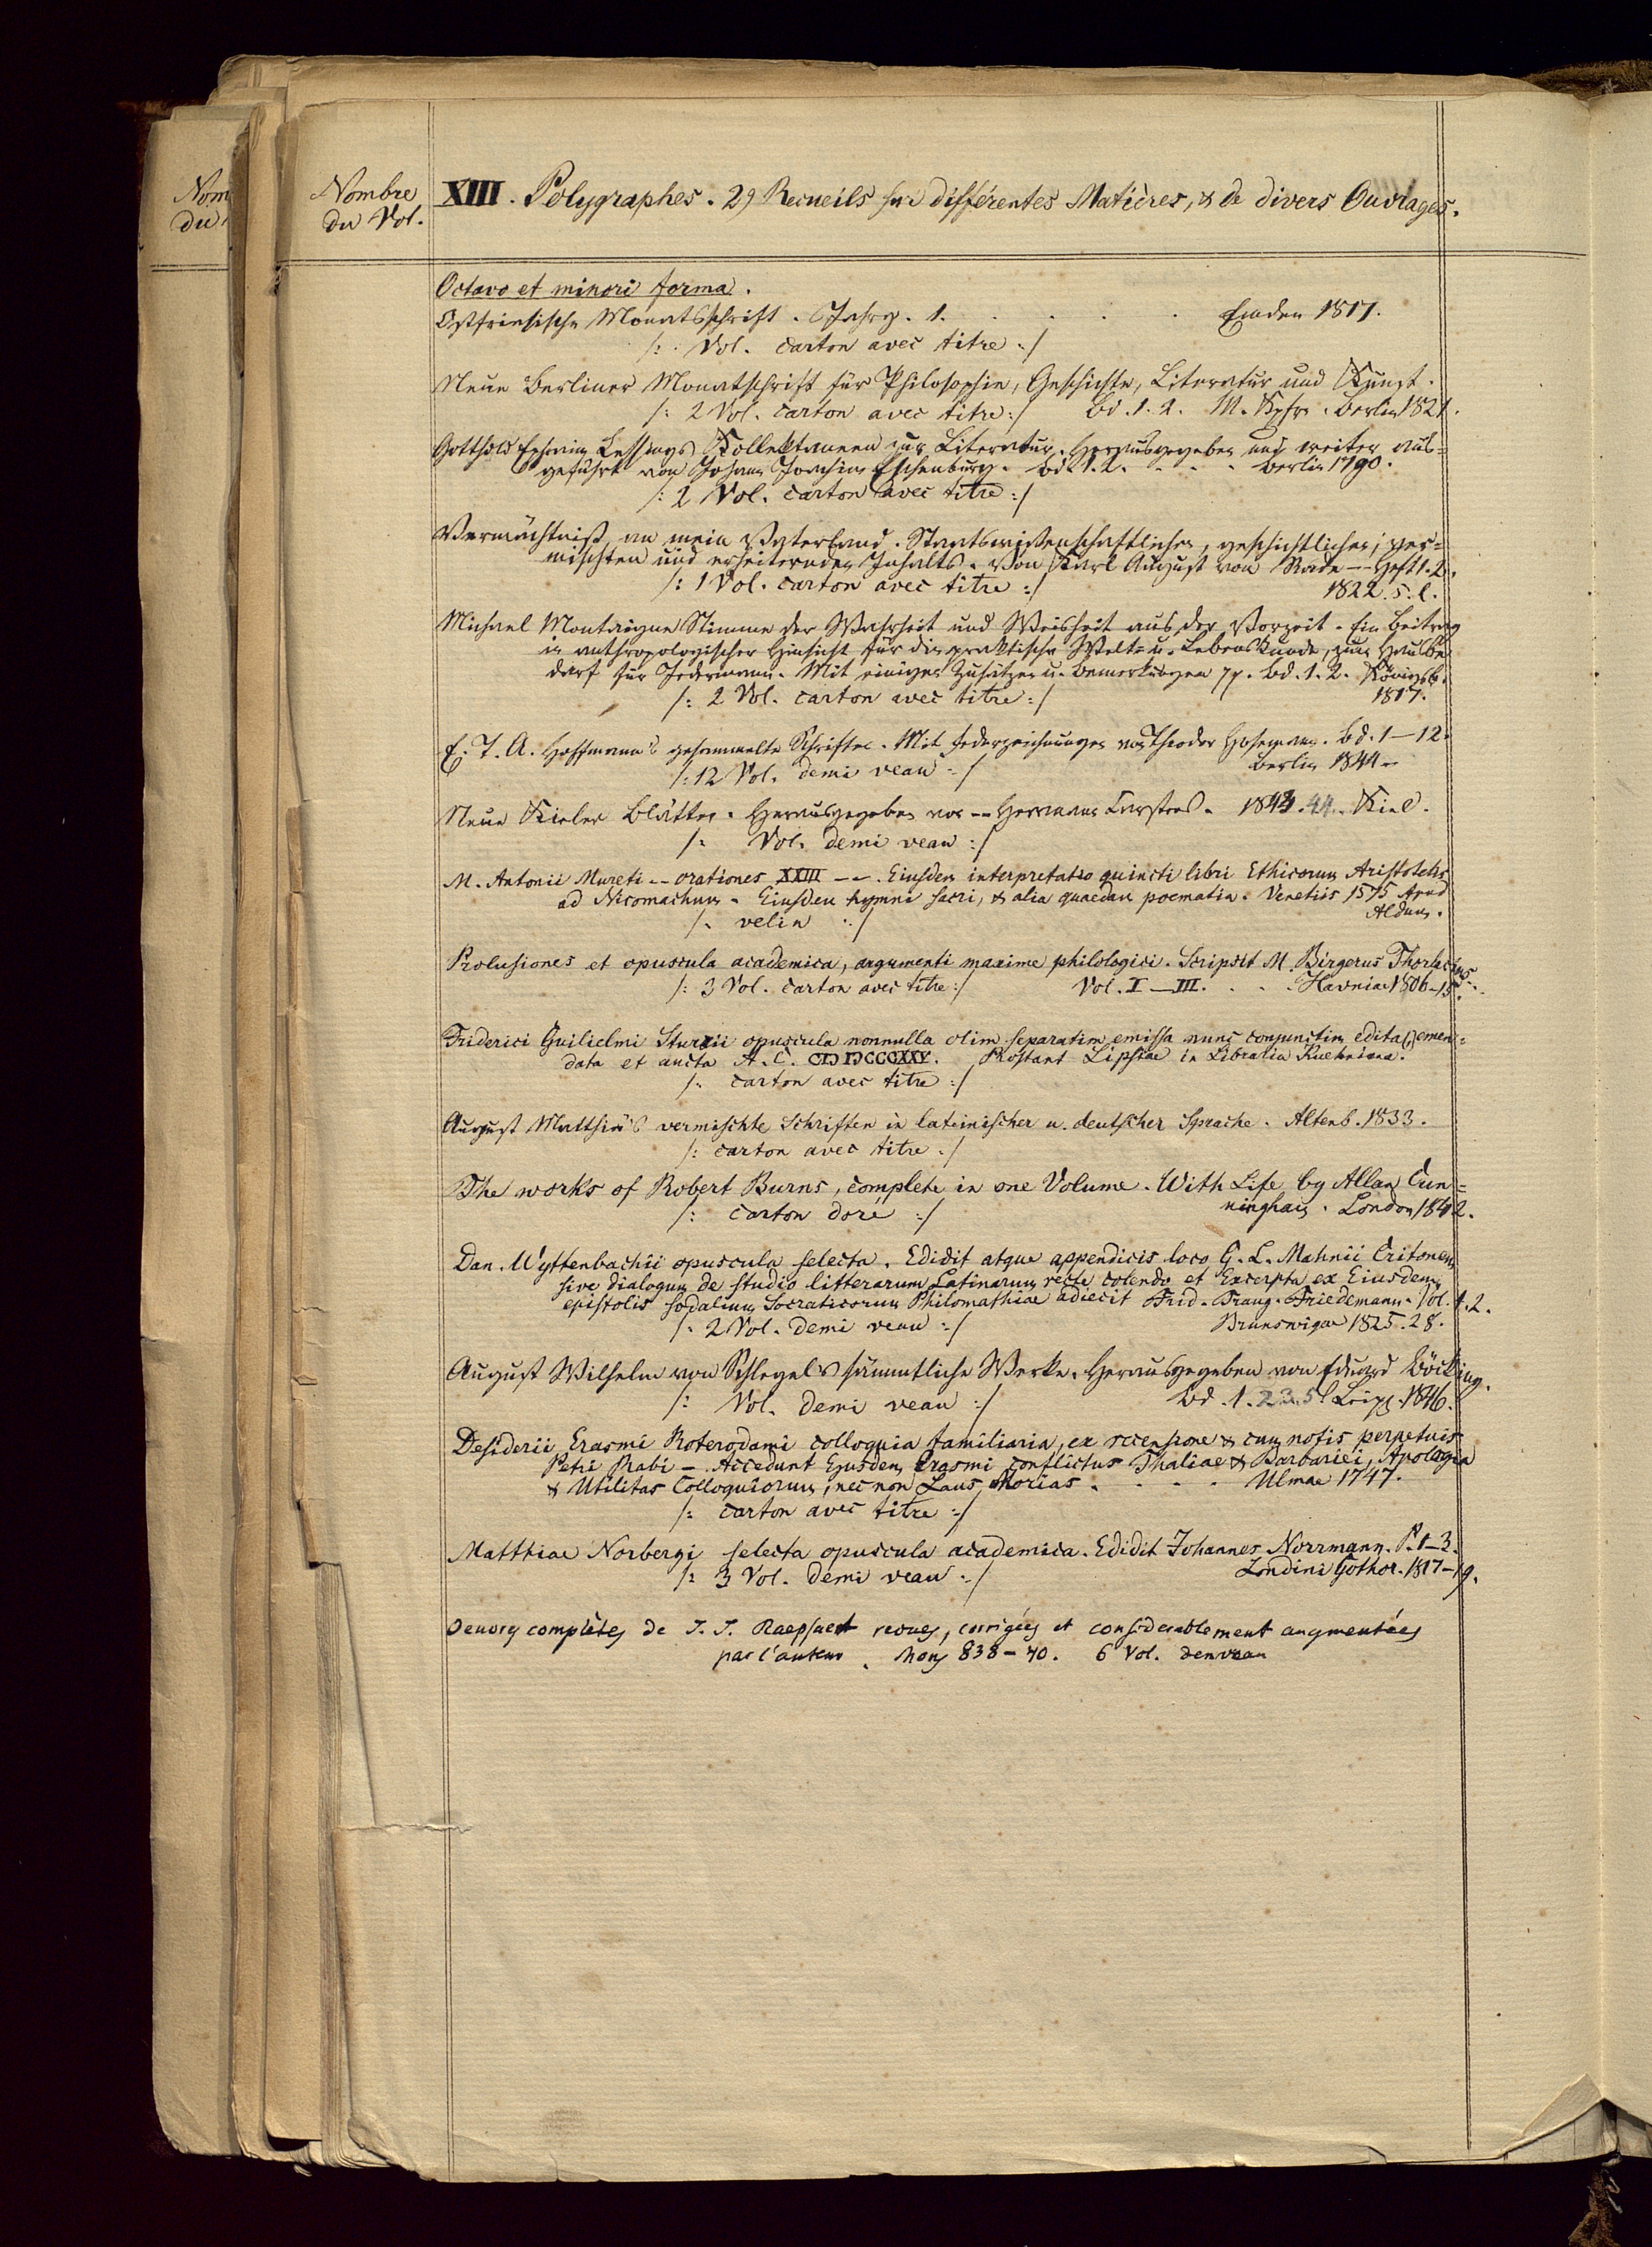 Nom
du
Nombre
du Vol.
XIII. Polygraphes. 29 Recueils sur différentes Matières, & de divers Ouvrages.
Octavo et minori forma.
Ostfriesische Monatsschrift. Jahrg. 1. . . . . Emden 1817.
/: . Vol. carton avec titre :/
Neue Berliner Monatschrift für Philosophie, Geschichte, Literatur und Kunst.
/: 2 Vol. carton avec titre :/ Bd. 1. 2. M. Kpfrn. Berlin 1821.
Gotthold Ephraim Lessings Kollektaneen zur Literatur. Herausgegeben und weiter aus=
geführt von Johann Joachim Eschenburg. Bd. 1. 2. - - - Berlin 1790.
/: 2 Vol. carton avec titre :/
Vermächtniß, an mein Vaterland. Staatswissenschaftlichen, geschichtlichen, ver=
mischten und erheiternden Inhalts. Von Karl August von Rade -- Heft 1. 2.
/: 1 Vol. carton avec titre :/ 1822. s. l.
Michael Montaigne Stimme der Wahrheit und Weisheit aus der Vorzeit. Ein Beitrag
in anthropologischer Hinsicht für die praktische Welt= u. Lebenskunde, zum Hausbe
darf für Jedermann. Mit einigen Zusätzen u. Bemerkungen pp. Bd. 1. 2. Königsb.
/: 2 Vol. carton avec titre :/ 1817.
E. T. A. Hoffmann's gesammelte Schriften. Mit Federzeichnungen von Theodor Hosemann. Bd. 1–12.
/: 12 Vol. demi veau :/ Berlin 1844
Neue Kieler Blätter. Herausgegeben von -- Hermann Carstens. 1843. 44. Kiel.
/: Vol. demi veau :/
M. Antonii Mureti -- orationes XXIII --. Eiusdem interpretatio quincti libri Ethicorum Aristotelis
ad Nicomachum. Eiusdem hymni sacri, & alia quaedam poematia. Venetiis 1575 Apud
/: velin :/ Aldum.
Prolusiones et opuscula academica, argumenti maxime philologici. Scripsit M. Birgerus Thorlacius
/: 3 Vol. carton avec titre :/ Vol. I–III. . . . Havniae 1806–15.
Friderici Guilielmi Sturzii opuscula nonnulla olim separatim emissa nunc conjunctim edita(,) emen=
data et aucta A. C. CIƆ IƆCCCXXV. Prostant Lipsiae in Libraria Kuehniana.
/: carton avec titre :/
August Matthiä's vermischte Schriften in lateinischer u. deutscher Sprache. Altenb. 1833.
/: carton avec titre :/
The works of Robert Burns, complete in one Volume. With Life by Allan Cun=
/: carton doré :/ ningham. London 1842.
Dan. Wyttenbachii opuscula selecta. Edidit atque appendicis loco G. L. Mahnii Critonem
sive dialogum de studio litterarum Latinarum recte colendo et Excerpta ex Eiusdem
epistolis sodalium Socraticorum Philomathiae adiecit Frid. Traug. Friedemann. Vol. 1. 2.
/: 2 Vol. demi veau :/ Brunsvigae 1825. 28.
August Wilhelm von Schlegel's sämmtliche Werke. Herausgegeben von Eduard Böcking.
/: Vol. demi veau :/ Bd. 1. 2. 3. 5. Leipz. 1846.
Desiderii Erasmi Roterodami colloquia familiaria, ex recensione & cum notis perpetuis
Petri Rabi – Accedunt Ejusdem Erasmi conflictus Thaliae & Barbariei, Apologia
& Utilitas Colloquiorum, nec non Laus Morias . . . . Ulmae 1747.
/: carton avec titre :/
Matthiae Norbergi selecta opuscula academica. Edidit Johannes Norrmann. P. 1–3.
/: 3 Vol. demi veau :/ Londini Gothor. 1817–19.
Oeuvres complètes de J. J. Raepsaet revues, corrigées et considerablement augmentées
par l'auteur. Mons 838–40. 6 Vol. demi veau